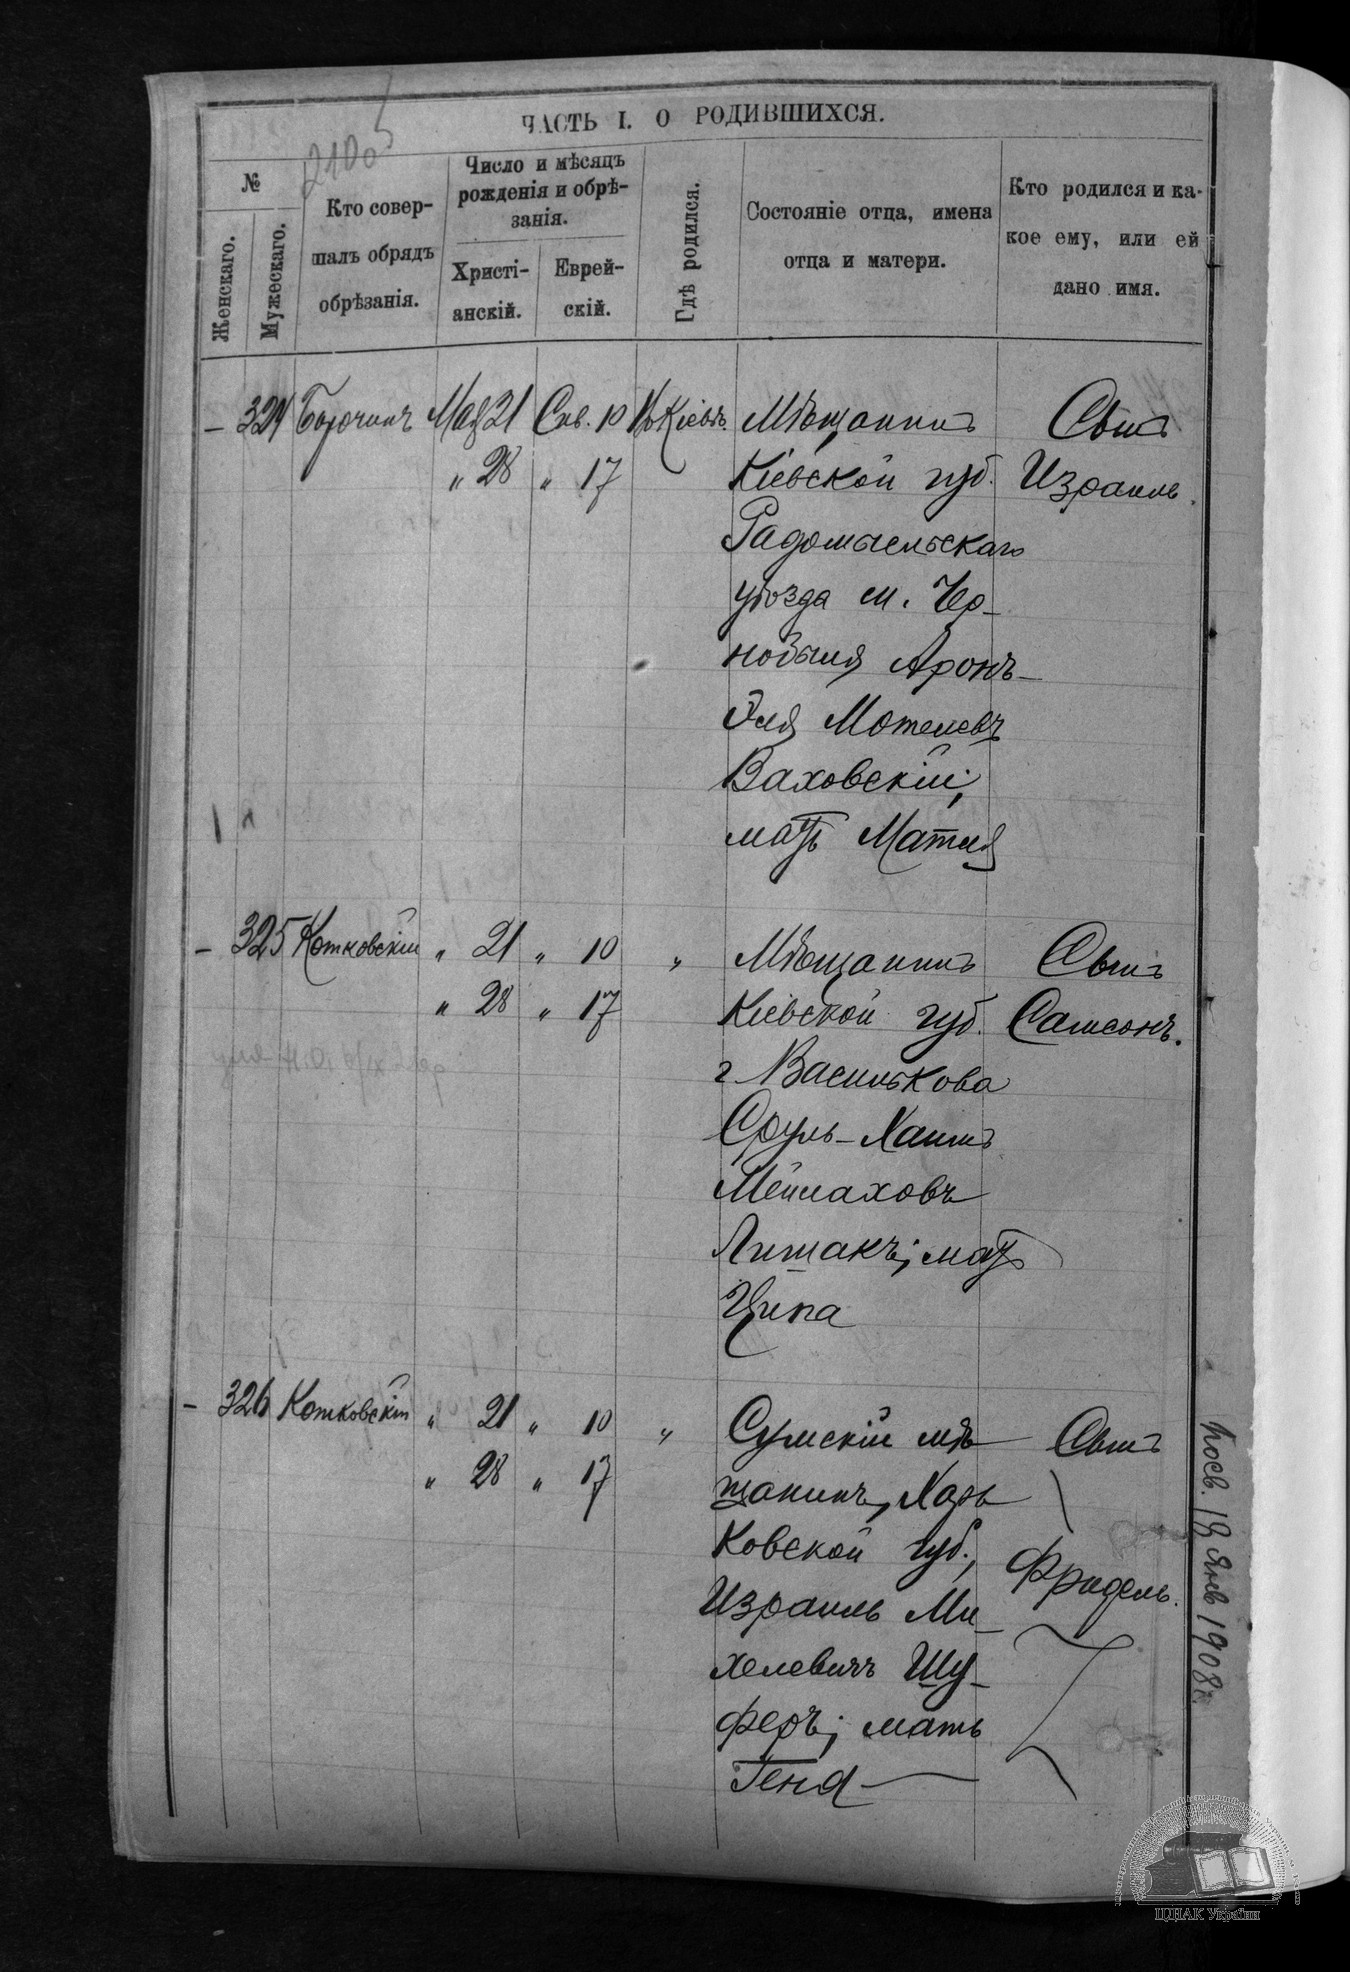 ЧАСТЬ I. О РОДИВШИХСЯ.
2100
№
Женскаго.
Мужескаго.
Кто совер-
шалъ обрядъ
обрѣзанія.
Число и мѣсяцъ
рожденія и обрѣ-
занія.
Христі-
анскій.
Еврей-
скій.
Гдѣ родился.
Состояніе отца, имена
отца и матери.
Кто родился и ка-
кое ему, или ей
дано имя.
– 324 Мая 21 Сив. 10 Въ Кіевѣ. Мѣщанинъ Сынъ
" 28 " 17 Кіевской губ. Израиль.
Радомысльскаго
уѣзда м. Чер-
нобыля Аронъ-
Эля Мотелевъ
Ваховскій;
мать Матля
– 325 Котковскій " 21 " 10 " Мѣщанинъ Сынъ
" 28 " 17 Кіевской губ. Самсонъ.
г. Василькова
Сруль-Хаимъ
Мейлаховъ
Литакъ; мать
Ципа
– 326 Котковскій " 21 " 10 " Сумскій мѣ-
щанинъ, Харь
ковской губ.,
Израиль Ми-
хелевичъ Шу-
феръ; мать
Геня
" 28 " 17
Сынъ
Фридель.
Посв. 18 Янв 1908 г.
ЦДІАК України